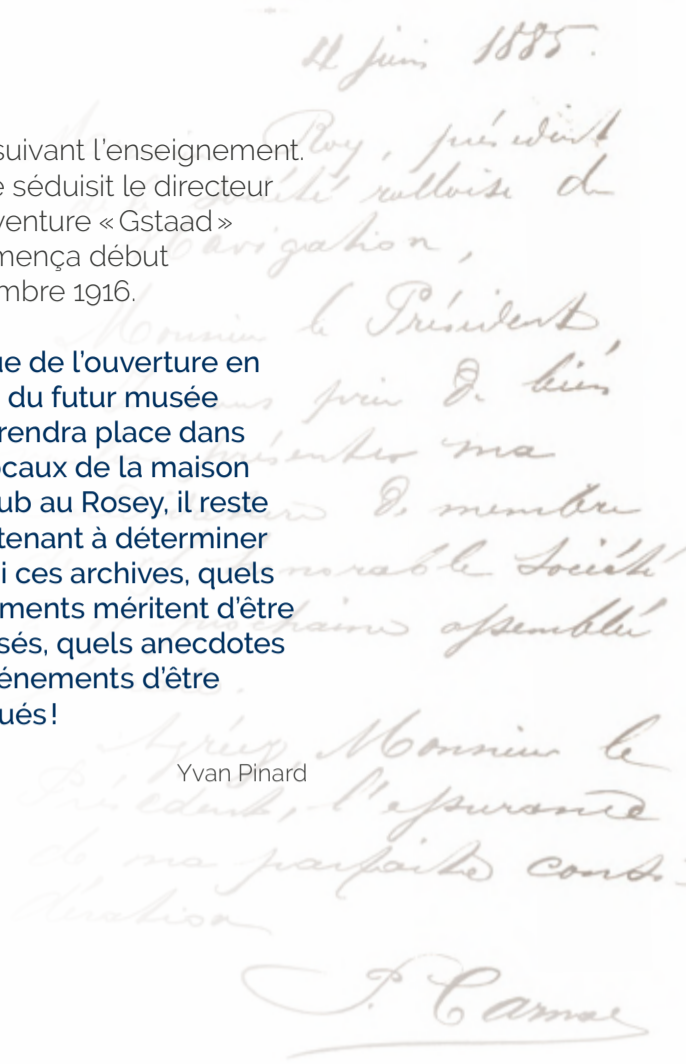 4 juin 1885.
Roy, président
Société rolloise de
Navigation,
Monsieur le Président,
vous prie de bien
présenter ma
de membre
honorable Société
prochaine assemblée
Agréez Monsieur le
Président, l'assurance
de ma parfaite consi-
dération
suivant l'enseignement.
e séduisit le directeur
venture « Gstaad »
mença début
mbre 1916.
ue de l'ouverture en
du futur musée
rendra place dans
ocaux de la maison
ub au Rosey, il reste
tenant à déterminer
i ces archives, quels
ments méritent d'être
sés, quels anecdotes
énements d'être
ués !
Yvan Pinard